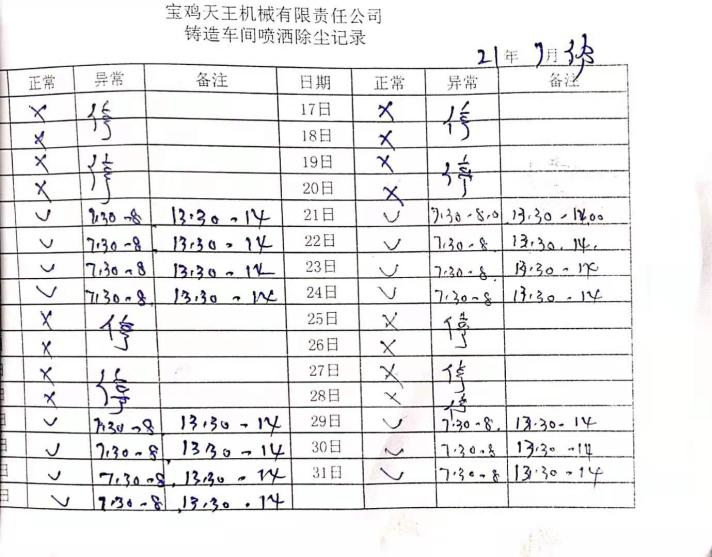 宝鸡天王机械有限责任公司
铸造车间喷洒除尘记录
21年 7月
正常 异常 备注 日期 正常 异常 备注
× 停 17日 × 停
× 18日 ×
× 停 19日 × 停
× 20日 ×
✓ 7:30-8 13:30-14 21日 ✓ 7:30-8.0 13:30-1400
✓ 7:30-8 13:30-14 22日 ✓ 7:30-8. 13:30.14.
✓ 7:30-8 13:30-14 23日 ✓ 7:30-8. 13:30-14
✓ 7:30-8. 13:30-14 24日 ✓ 7:30-8 13:30-14
× 停 25日 × 停
× 26日 ×
× 停 27日 × 停
× 28日 × 停
日 ✓ 7:30-8 13:30-14 29日 ✓ 7:30-8. 13:30-14
日 ✓ 7:30-8. 13:30-14 30日 ✓ 7:30-8. 13:30-14
日 ✓ 7:30-8. 13:30-14 31日 ✓ 7:30-8 13:30-14
日 ✓ 7:30-8 13:30.14